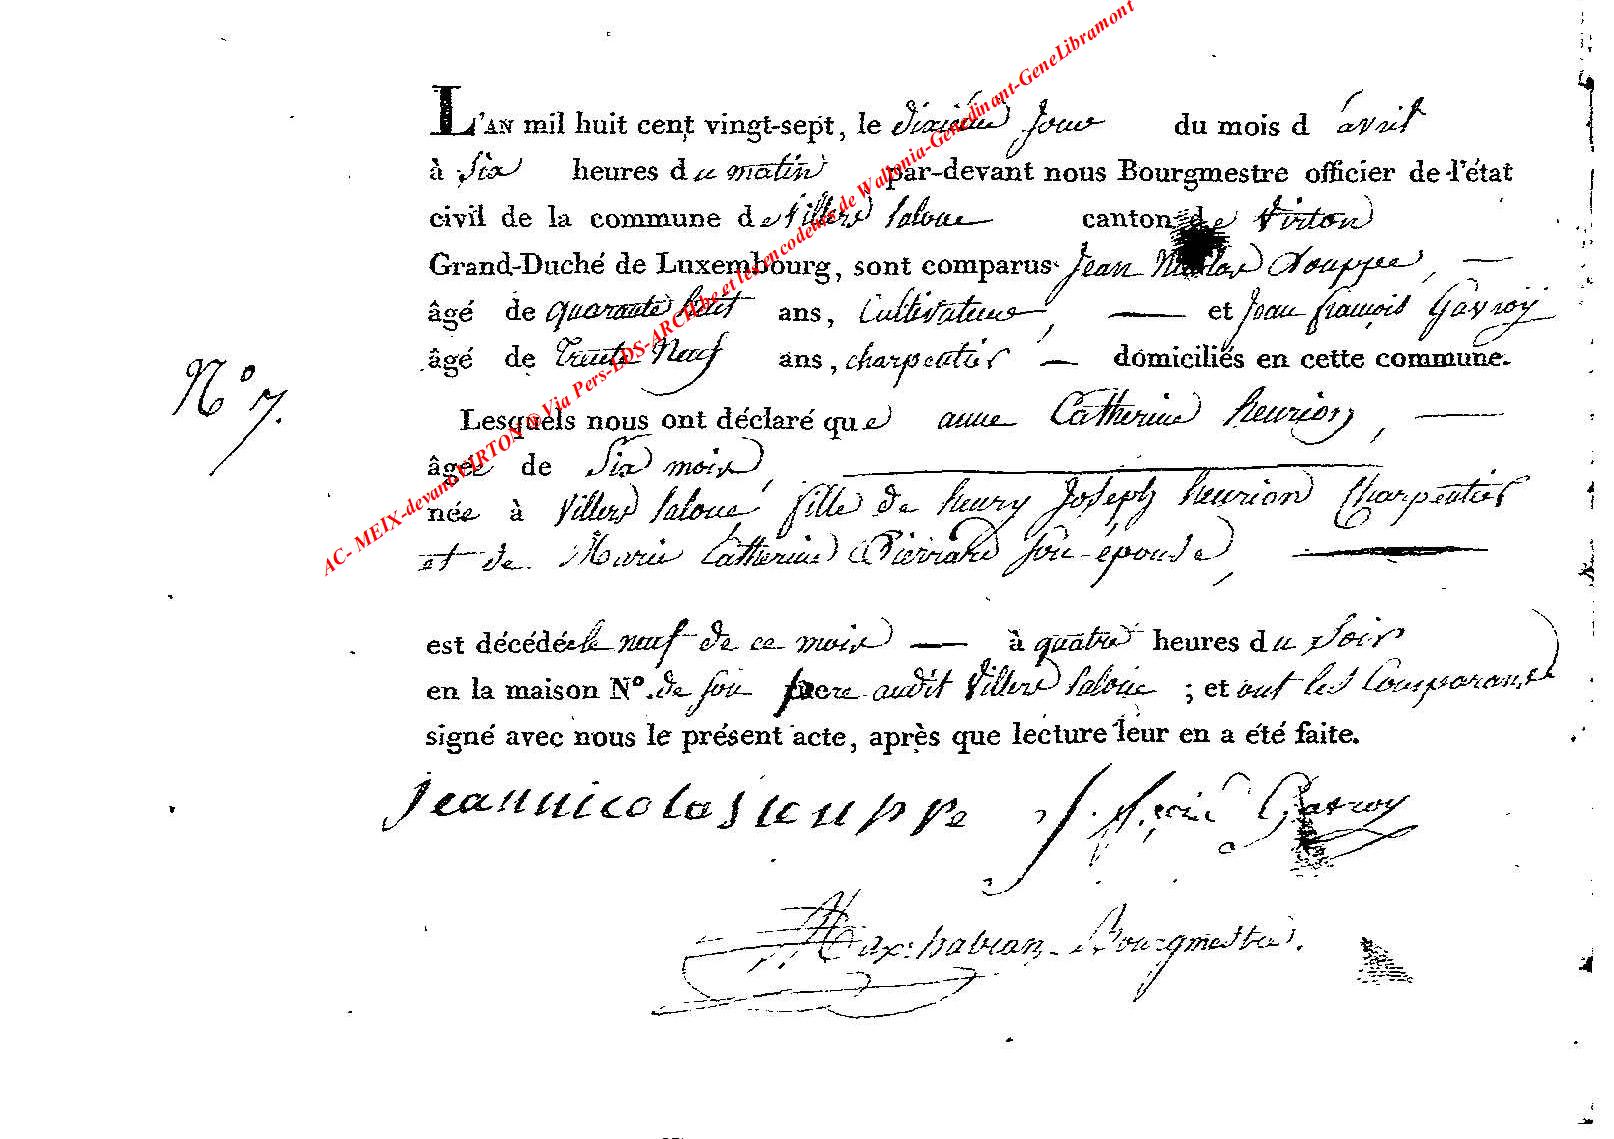 L'AN mil huit cent vingt-sept, le dixième jour du mois d'avril
à six heures du matin par-devant nous Bourgmestre officier de l'état
civil de la commune de Villers laloue canton de Virton
Grand-Duché de Luxembourg, sont comparus Jean Nicolas
âgé de quarante huit ans, Cultivateur, et Jean françois Gavroy
âgé de Trente Neuf ans, charpentier domiciliés en cette commune.
N° 7.
Lesquels nous ont déclaré que anne Catherine henrion,
âgée de Six mois,
née à Villers laloue, fille de henry Joseph henrion Charpentier
et de Marie Catherine Pierrard son épouse,
est décédée le neuf de ce mois à quatre heures du soir
en la maison N°. de son pere audit Villers laloue ; et ont les Comparans
signé avec nous le présent acte, après que lecture leur en a été faite.
jean nicolas j. f. çois Gavroy
Bourgmestre.
AC- MEIX-devant-VIRTON @ Via Pers-LDS-ARCH.be et les encodeurs de Wallonia-Genedinant-GeneLibramont